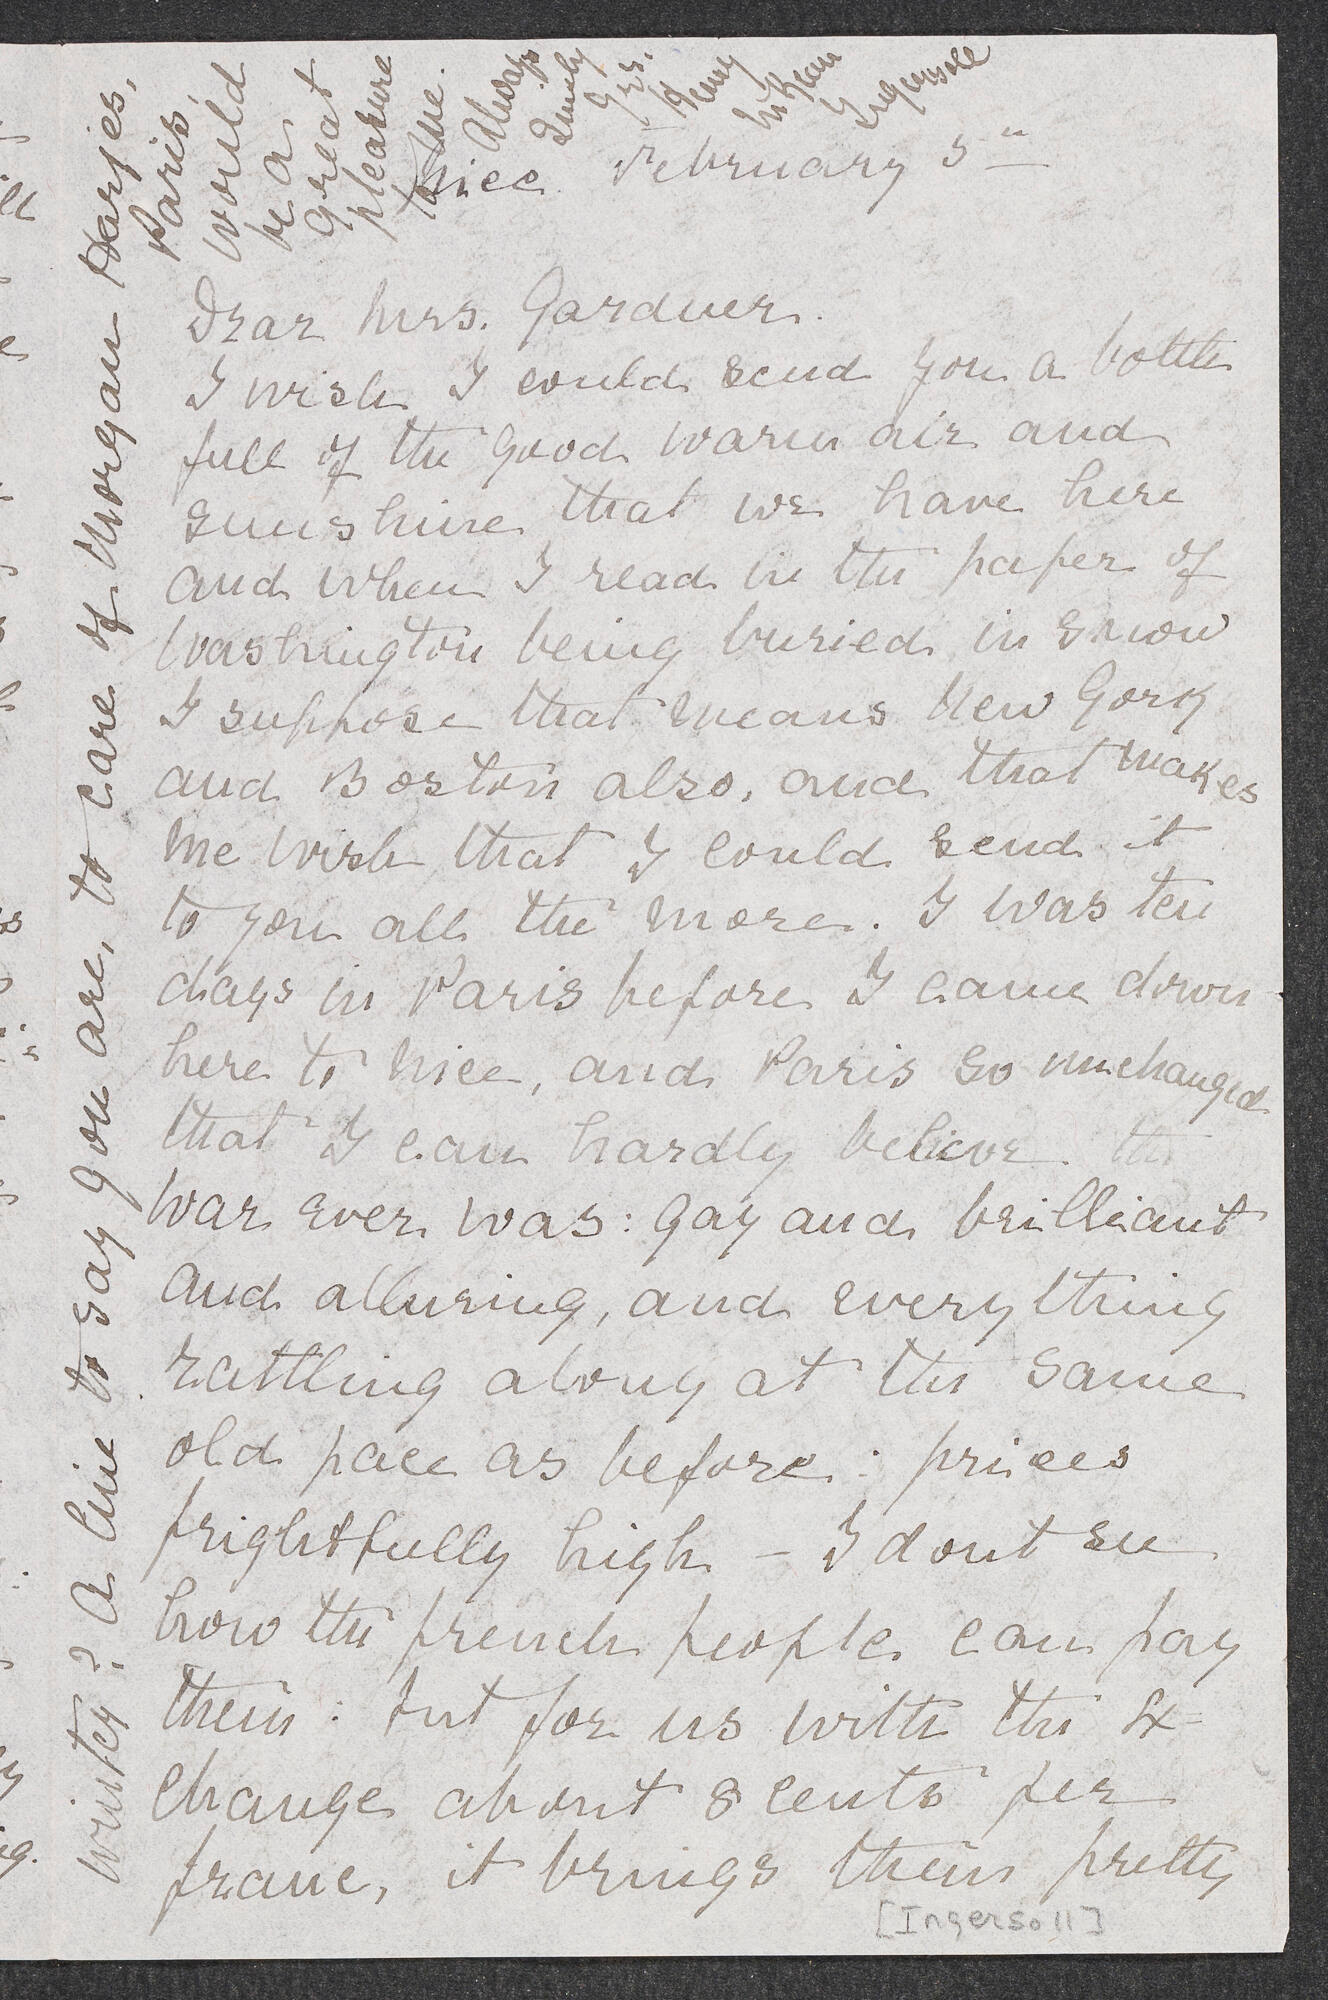 Nice February 5th
Dear Mrs. Gardner.
I wish I could send you a bottle
full of the good warm air and
sunshine that we have here
and when I read in the paper of
Washington being buried in snow
I suppose that means New York
and Boston also, and that makes
me wish that I could send it
to you all the more. I was ten
days in Paris before I came down
here to Nice, and Paris so unchanged
that I can hardly believe the
war ever was: gay and brilliant
and alluring, and everything
rattling along at the same
old pace as before: prices
frightfully high - I dont see
how the french people can pay
them: but for us with the ex=
change about 8 cents per
franc, it brings them pretty
[Ingersoll]
winter? A line to say you are, to care of Morgan Harjes,
Paris,
would
be a
great
pleasure
to me.
Always
Yrs.
Henry
Ingersoll